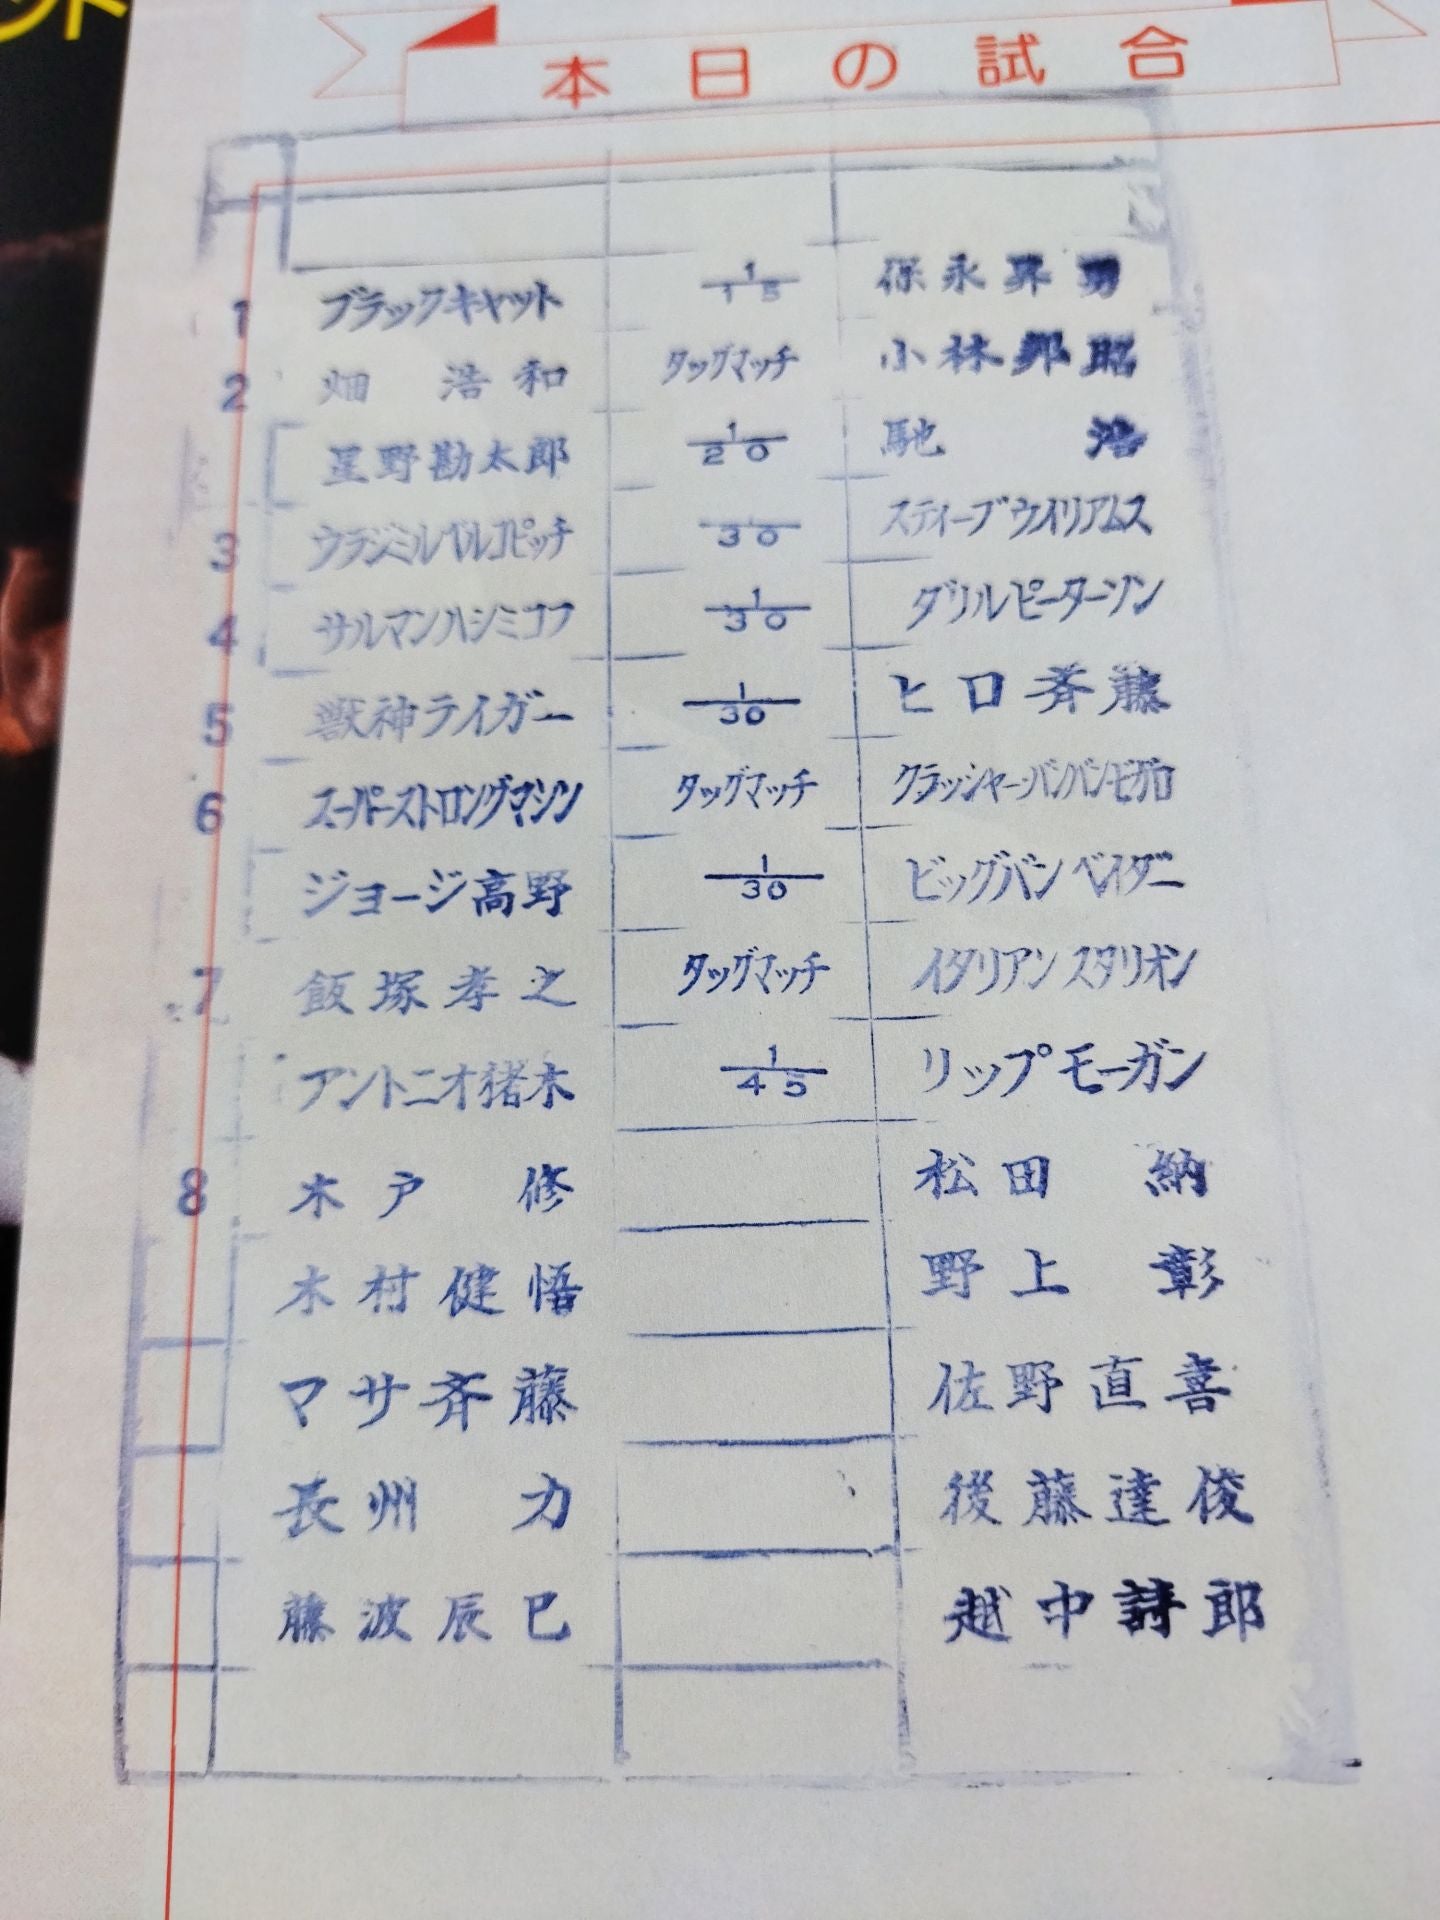 本日の試合
1 ブラックキャット 1/15 保永昇男
2 畑 浩和 タッグマッチ 小林邦昭
星野勘太郎 1/20 馳 浩
3 ウラジミルベルコビッチ 30 スティーブウイリアムス
4 サルマンハシミコフ 1/30 ダリルピーターソン
5 獣神ライガー 1/30 ヒロ斉藤
6 スーパーストロングマシン タッグマッチ クラッシャーバンバンビガロ
ジョージ高野 1/30 ビッグバンベイダー
7 飯塚孝之 タッグマッチ イタリアンスタリオン
アントニオ猪木 1/45 リップモーガン
8 木戸 修 松田 納
木村健悟 野上 彰
マサ斉藤 佐野直喜
長州 力 後藤達俊
藤波辰巳 越中詩郎